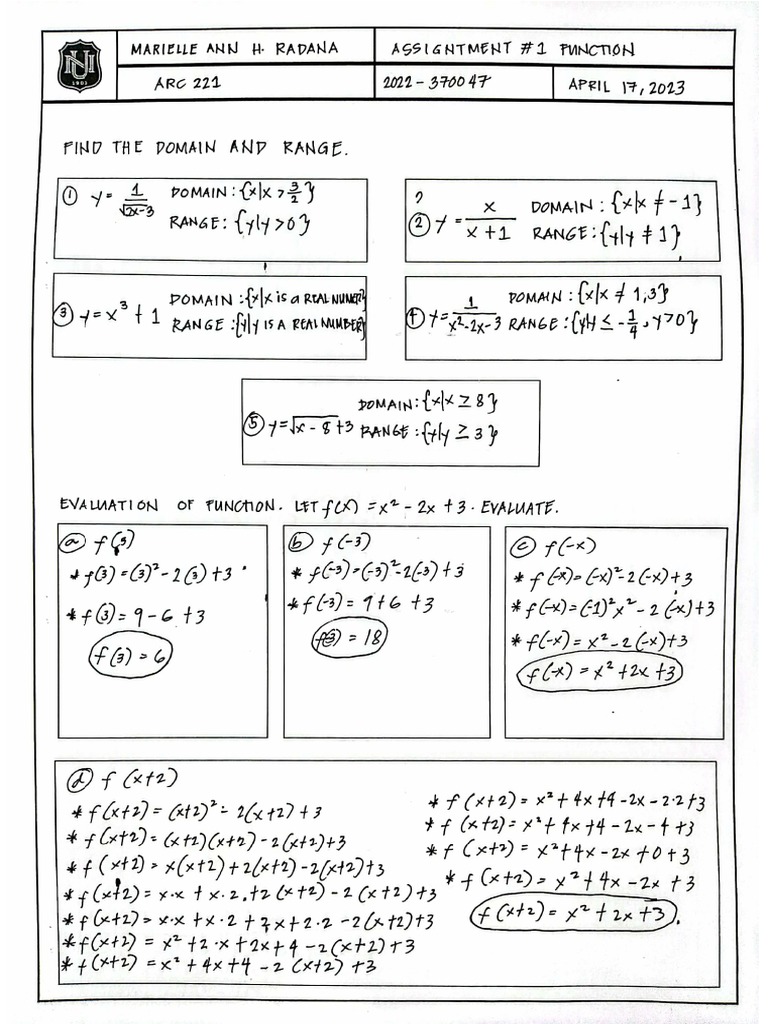 NU
1900
MARIELLE ANN H. RADANA
ASSIGNTMENT #1 FUNCTION
ARC 221
2022-370047
APRIL 17, 2023
FIND THE DOMAIN AND RANGE.
① y = 1/√2x-3 DOMAIN: {x|x > 3/2}
RANGE: {y|y > 0}
② y = x/x+1 DOMAIN: {x|x ≠ -1}
RANGE: {y|y ≠ 1}
③ y = x³ + 1 DOMAIN: {x|x is a REAL NUMBER}
RANGE: {y|y IS A REAL NUMBER}
④ y = 1/x²-2x-3 DOMAIN: {x|x ≠ 1,3}
RANGE: {y|y ≤ -1/4, y > 0}
⑤ y = √x-8 +3 DOMAIN: {x|x ≥ 8}
RANGE: {y|y ≥ 3}
EVALUATION OF FUNCTION. LET f(x) = x² - 2x + 3. EVALUATE.
ⓐ f(3)
* f(3) = (3)² - 2(3) + 3
* f(3) = 9 - 6 + 3
f(3) = 6
ⓑ f(-3)
* f(-3) = (-3)² - 2(-3) + 3
* f(-3) = 9 + 6 + 3
f(-3) = 18
ⓒ f(-x)
* f(-x) = (-x)² - 2(-x) + 3
* f(-x) = (-1)²x² - 2(-x) + 3
* f(-x) = x² - 2(-x) + 3
f(-x) = x² + 2x + 3
ⓓ f(x+2)
* f(x+2) = (x+2)² - 2(x+2) + 3
* f(x+2) = (x+2)(x+2) - 2(x+2) + 3
* f(x+2) = x(x+2) + 2(x+2) - 2(x+2) + 3
* f(x+2) = x·x + x·2 + 2(x+2) - 2(x+2) + 3
* f(x+2) = x·x + x·2 + 2x + 2·2 - 2(x+2) + 3
* f(x+2) = x² + 2·x + 2x + 4 - 2(x+2) + 3
* f(x+2) = x² + 4x + 4 - 2(x+2) + 3
* f(x+2) = x² + 4x + 4 - 2x - 2·2 + 3
* f(x+2) = x² + 4x + 4 - 2x - 4 + 3
* f(x+2) = x² + 4x - 2x + 0 + 3
* f(x+2) = x² + 4x - 2x + 3
f(x+2) = x² + 2x + 3.